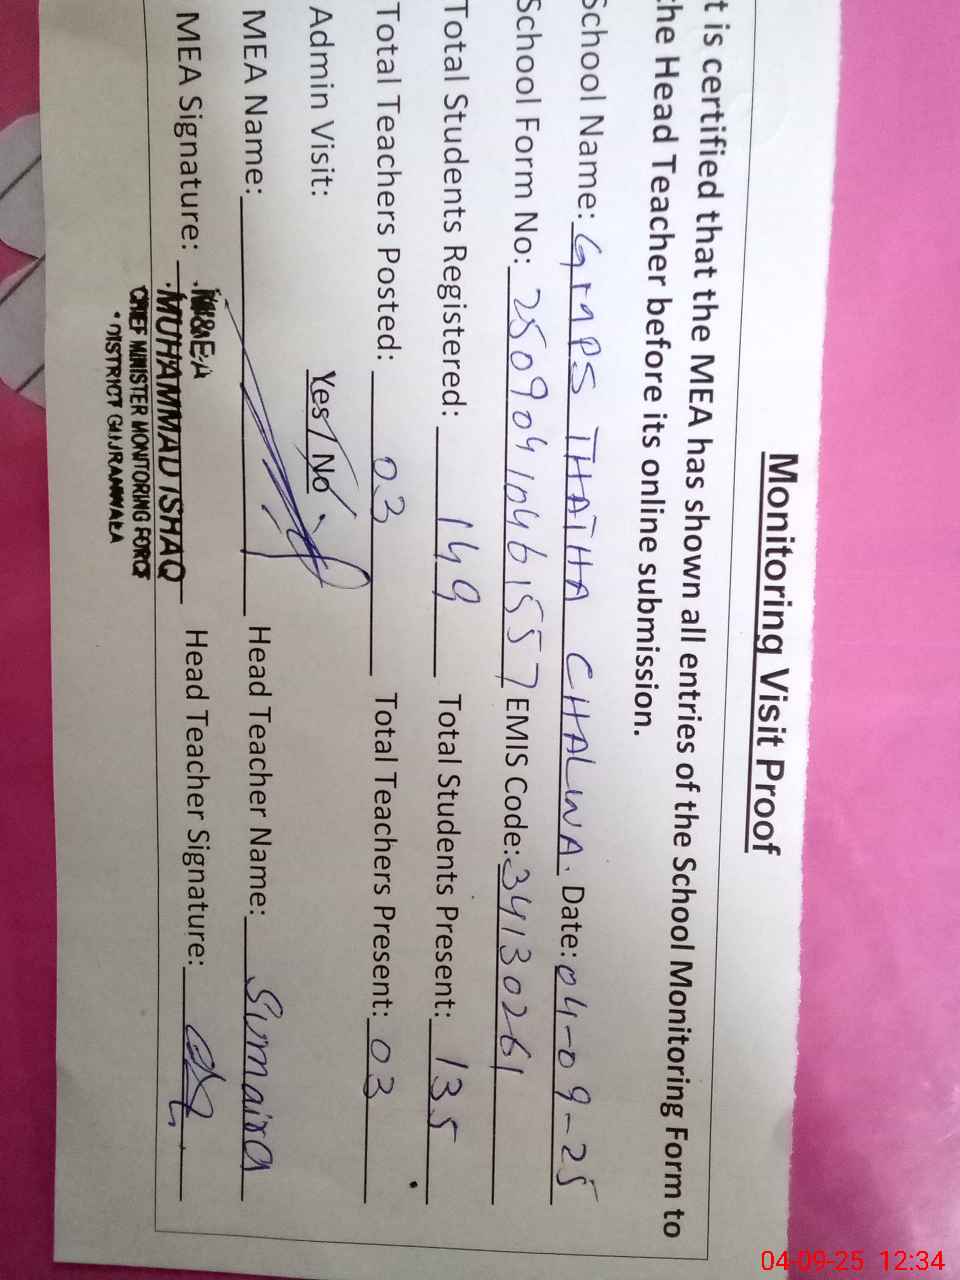 Monitoring Visit Proof
t is certified that the MEA has shown all entries of the School Monitoring Form to
the Head Teacher before its online submission.
School Name: GMPS THATHA CHALWA. Date: 04-09-25
School Form No: 25090410461557 EMIS Code: 34130261
Total Students Registered: 149 Total Students Present: 135
Total Teachers Posted: 03 Total Teachers Present: 03
Admin Visit: Yes / No
MEA Name: Head Teacher Name: Sumaira
MEA Signature: Head Teacher Signature:
M&EA
MUHAMMAD ISHAQ
CHIEF MINISTER MONITORING FORCE
DISTRICT GUJRANWALA
04-09-25 12:34